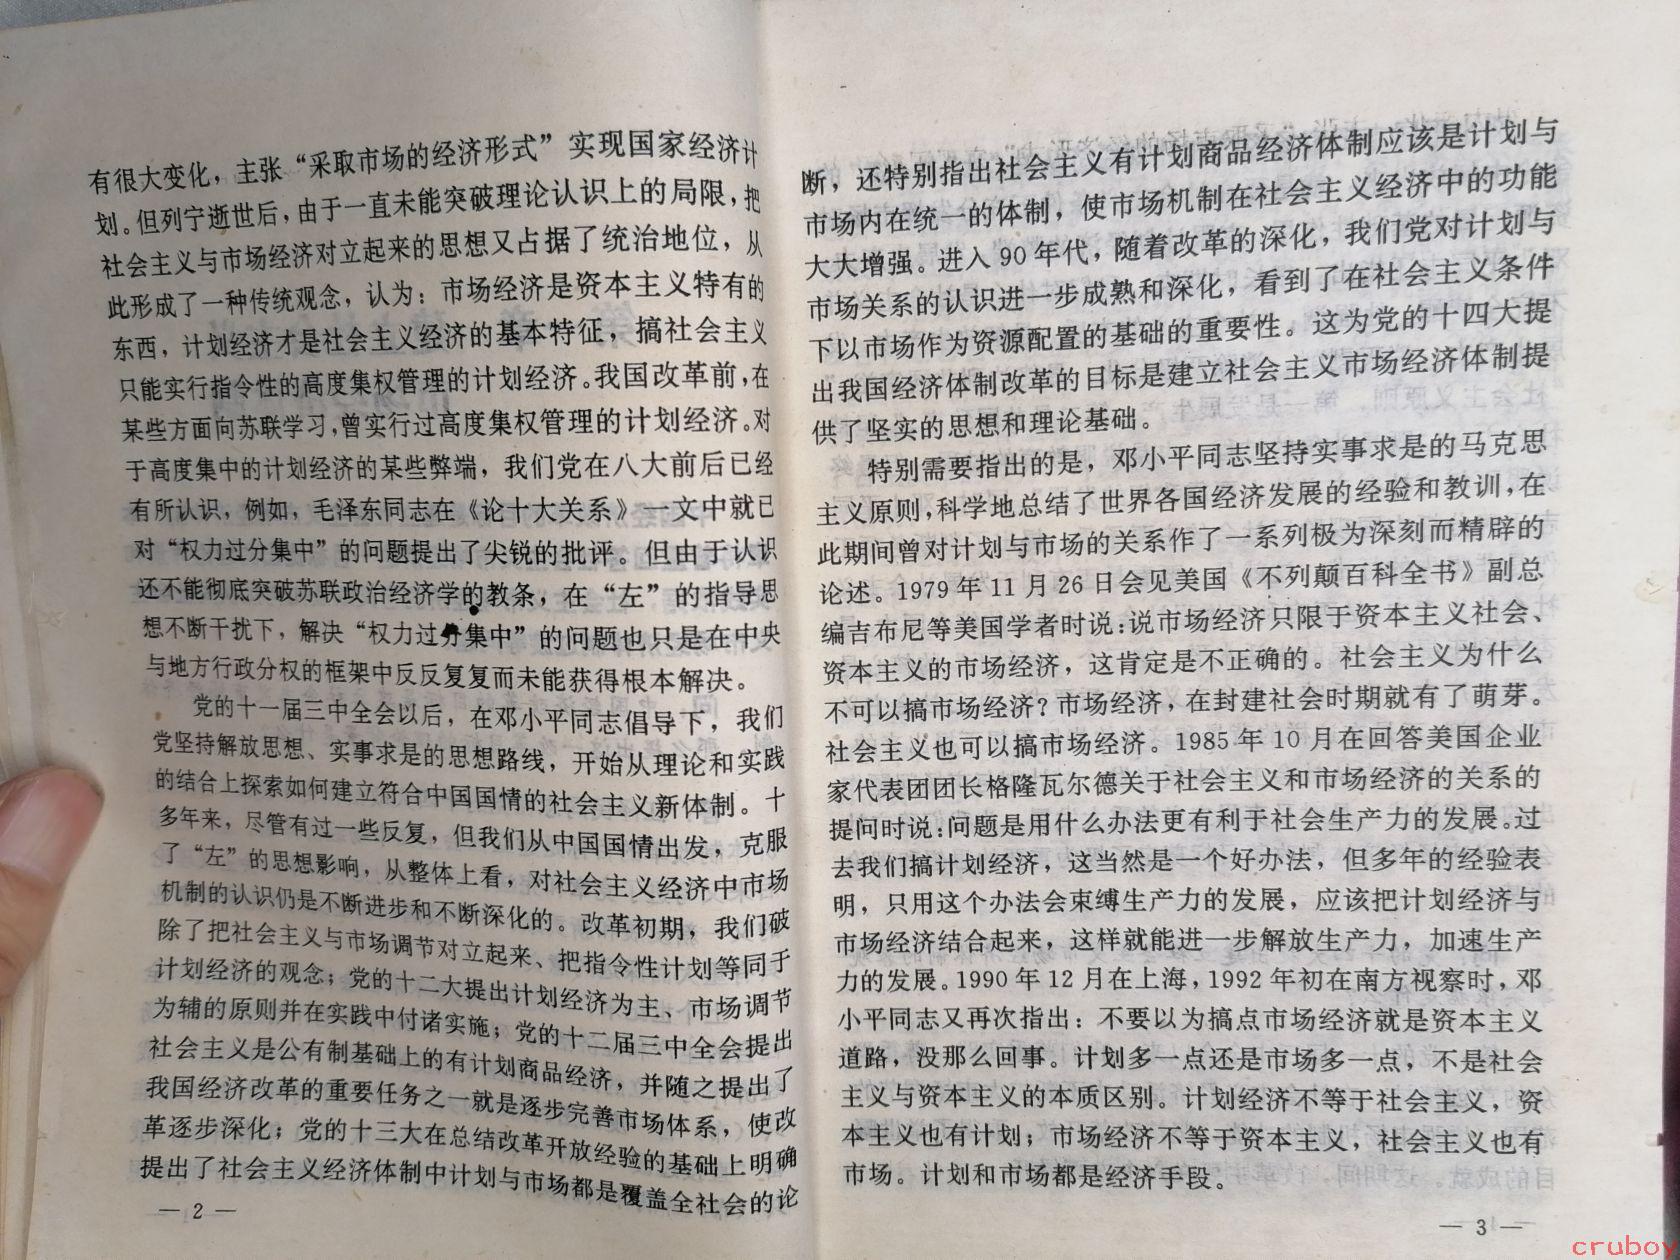 有很大变化，主张“采取市场的经济形式”实现国家经济计
划。但列宁逝世后，由于一直未能突破理论认识上的局限，把
社会主义与市场经济对立起来的思想又占据了统治地位，从
此形成了一种传统观念，认为：市场经济是资本主义特有的
东西，计划经济才是社会主义经济的基本特征，搞社会主义
只能实行指令性的高度集权管理的计划经济。我国改革前，在
某些方面向苏联学习，曾实行过高度集权管理的计划经济。对
于高度集中的计划经济的某些弊端，我们党在八大前后已经
有所认识，例如，毛泽东同志在《论十大关系》一文中就已
对“权力过分集中”的问题提出了尖锐的批评。但由于认识
还不能彻底突破苏联政治经济学的教条，在“左”的指导思
想不断干扰下，解决“权力过分集中”的问题也只是在中央
与地方行政分权的框架中反反复复而未能获得根本解决。
党的十一届三中全会以后，在邓小平同志倡导下，我们
党坚持解放思想、实事求是的思想路线，开始从理论和实践
的结合上探索如何建立符合中国国情的社会主义新体制。十
多年来，尽管有过一些反复，但我们从中国国情出发，克服
了“左”的思想影响，从整体上看，对社会主义经济中市场
机制的认识仍是不断进步和不断深化的。改革初期，我们破
除了把社会主义与市场调节对立起来、把指令性计划等同于
计划经济的观念；党的十二大提出计划经济为主、市场调节
为辅的原则并在实践中付诸实施；党的十二届三中全会提出
社会主义是公有制基础上的有计划商品经济，并随之提出了
我国经济改革的重要任务之一就是逐步完善市场体系，使改
革逐步深化；党的十三大在总结改革开放经验的基础上明确
提出了社会主义经济体制中计划与市场都是覆盖全社会的论
— 2 —
断，还特别指出社会主义有计划商品经济体制应该是计划与
市场内在统一的体制，使市场机制在社会主义经济中的功能
大大增强。进入 90 年代，随着改革的深化，我们党对计划与
市场关系的认识进一步成熟和深化，看到了在社会主义条件
下以市场作为资源配置的基础的重要性。这为党的十四大提
出我国经济体制改革的目标是建立社会主义市场经济体制提
供了坚实的思想和理论基础。
特别需要指出的是，邓小平同志坚持实事求是的马克思
主义原则，科学地总结了世界各国经济发展的经验和教训，在
此期间曾对计划与市场的关系作了一系列极为深刻而精辟的
论述。1979 年 11 月 26 日会见美国《不列颠百科全书》副总
编吉布尼等美国学者时说：说市场经济只限于资本主义社会、
资本主义的市场经济，这肯定是不正确的。社会主义为什么
不可以搞市场经济？市场经济，在封建社会时期就有了萌芽。
社会主义也可以搞市场经济。1985 年 10 月在回答美国企业
家代表团团长格隆瓦尔德关于社会主义和市场经济的关系的
提问时说：问题是用什么办法更有利于社会生产力的发展。过
去我们搞计划经济，这当然是一个好办法，但多年的经验表
明，只用这个办法会束缚生产力的发展，应该把计划经济与
市场经济结合起来，这样就能进一步解放生产力，加速生产
力的发展。1990 年 12 月在上海，1992 年初在南方视察时，邓
小平同志又再次指出：不要以为搞点市场经济就是资本主义
道路，没那么回事。计划多一点还是市场多一点，不是社会
主义与资本主义的本质区别。计划经济不等于社会主义，资
本主义也有计划；市场经济不等于资本主义，社会主义也有
市场。计划和市场都是经济手段。
— 3 —
cruboy